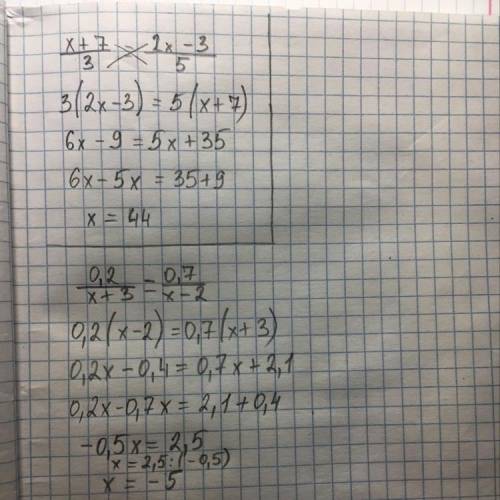 x+7/3 = 2x-3/5
3(2x-3) = 5(x+7)
6x-9 = 5x+35
6x-5x = 35+9
x = 44
0,2/x+3 = 0,7/x-2
0,2(x-2) = 0,7(x+3)
0,2x-0,4 = 0,7x+2,1
0,2x-0,7x = 2,1+0,4
-0,5x = 2,5
x = 2,5:(-0,5)
x = -5